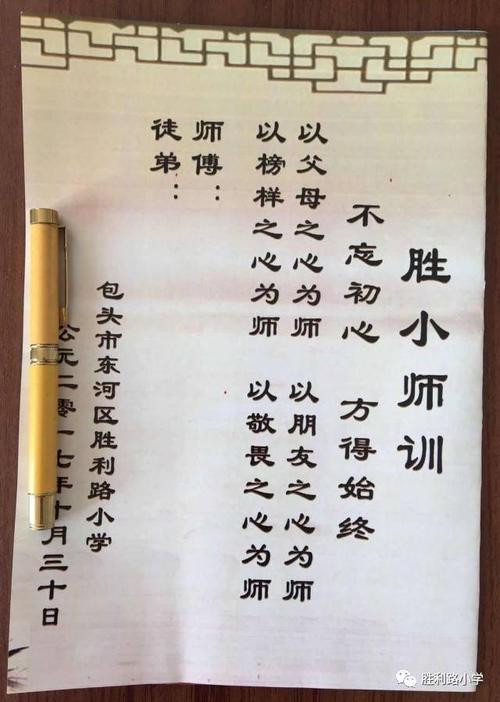 胜小师训
不忘初心 方得始终
以父母之心为师 以朋友之心为师
以榜样之心为师 以敬畏之心为师
师傅：
徒弟：
包头市东河区胜利路小学
公元二零一七年十月三十日
胜利路小学